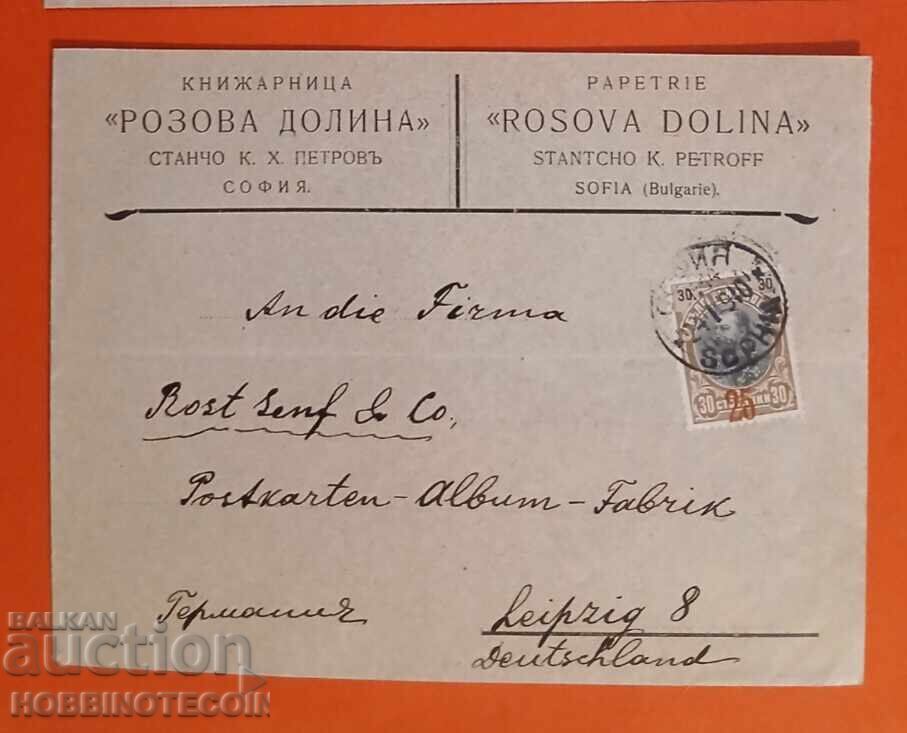 КНИЖАРНИЦА
«РОЗОВА ДОЛИНА»
СТАНЧО К. Х. ПЕТРОВЪ
СОФИЯ.
PAPETRIE
«ROSOVA DOLINA»
STANTCHO K. PETROFF
SOFIA (Bulgarie).
30. 30.
SOPHIA
30 СТОТИНКИ 30
25
An die Firma
Rost Senf & Co.,
Postkarten-Album-Fabrik
Германия
Leipzig 8
Deutschland
BALKAN
auction
HOBBINOTECOIN